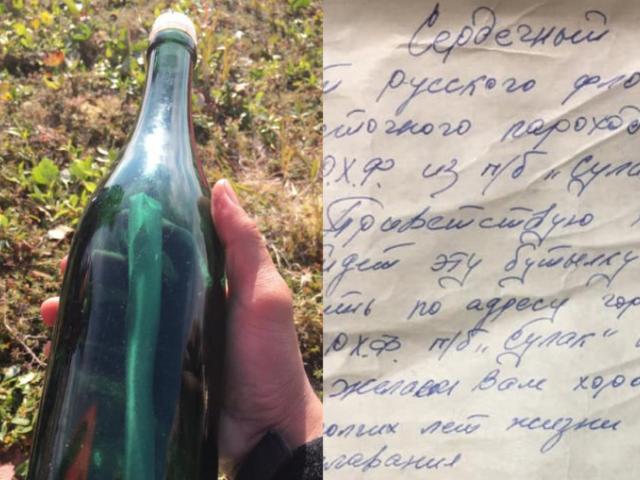 Сердечный
й русского фло
сточного пароход
О.Х.Ф. из п/б „Сула
Приветствую
йдет эту бутылку
ть по адресу гор
ОХФ. п/б „Сулак"
желаем Вам хоро
олгих лет жизни
лавания